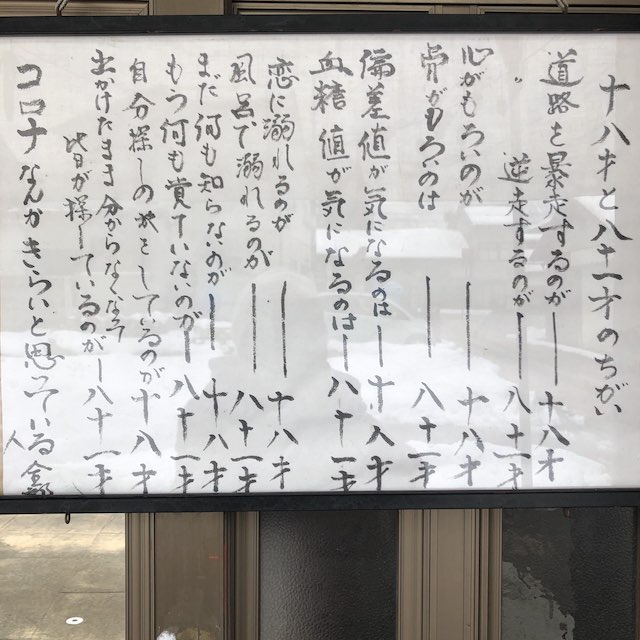 十八才と八十一才のちがい
道路を暴走するのが―十八才
〃 逆走するのが―八十一才
心がもろいのが―十八才
骨がもろいのは―八十一才
偏差値が気になるのは―十八才
血糖値が気になるのは―八十一才
恋に溺れるのが―十八才
風呂で溺れるのが―八十一才
まだ何も知らないのが―十八才
もう何も覚ていないのが―八十一才
自分探しの旅をしているのが十八才
出かけたまま分からなくなって
皆が探しているのが―八十一才
コロナなんかきらいと思っている人